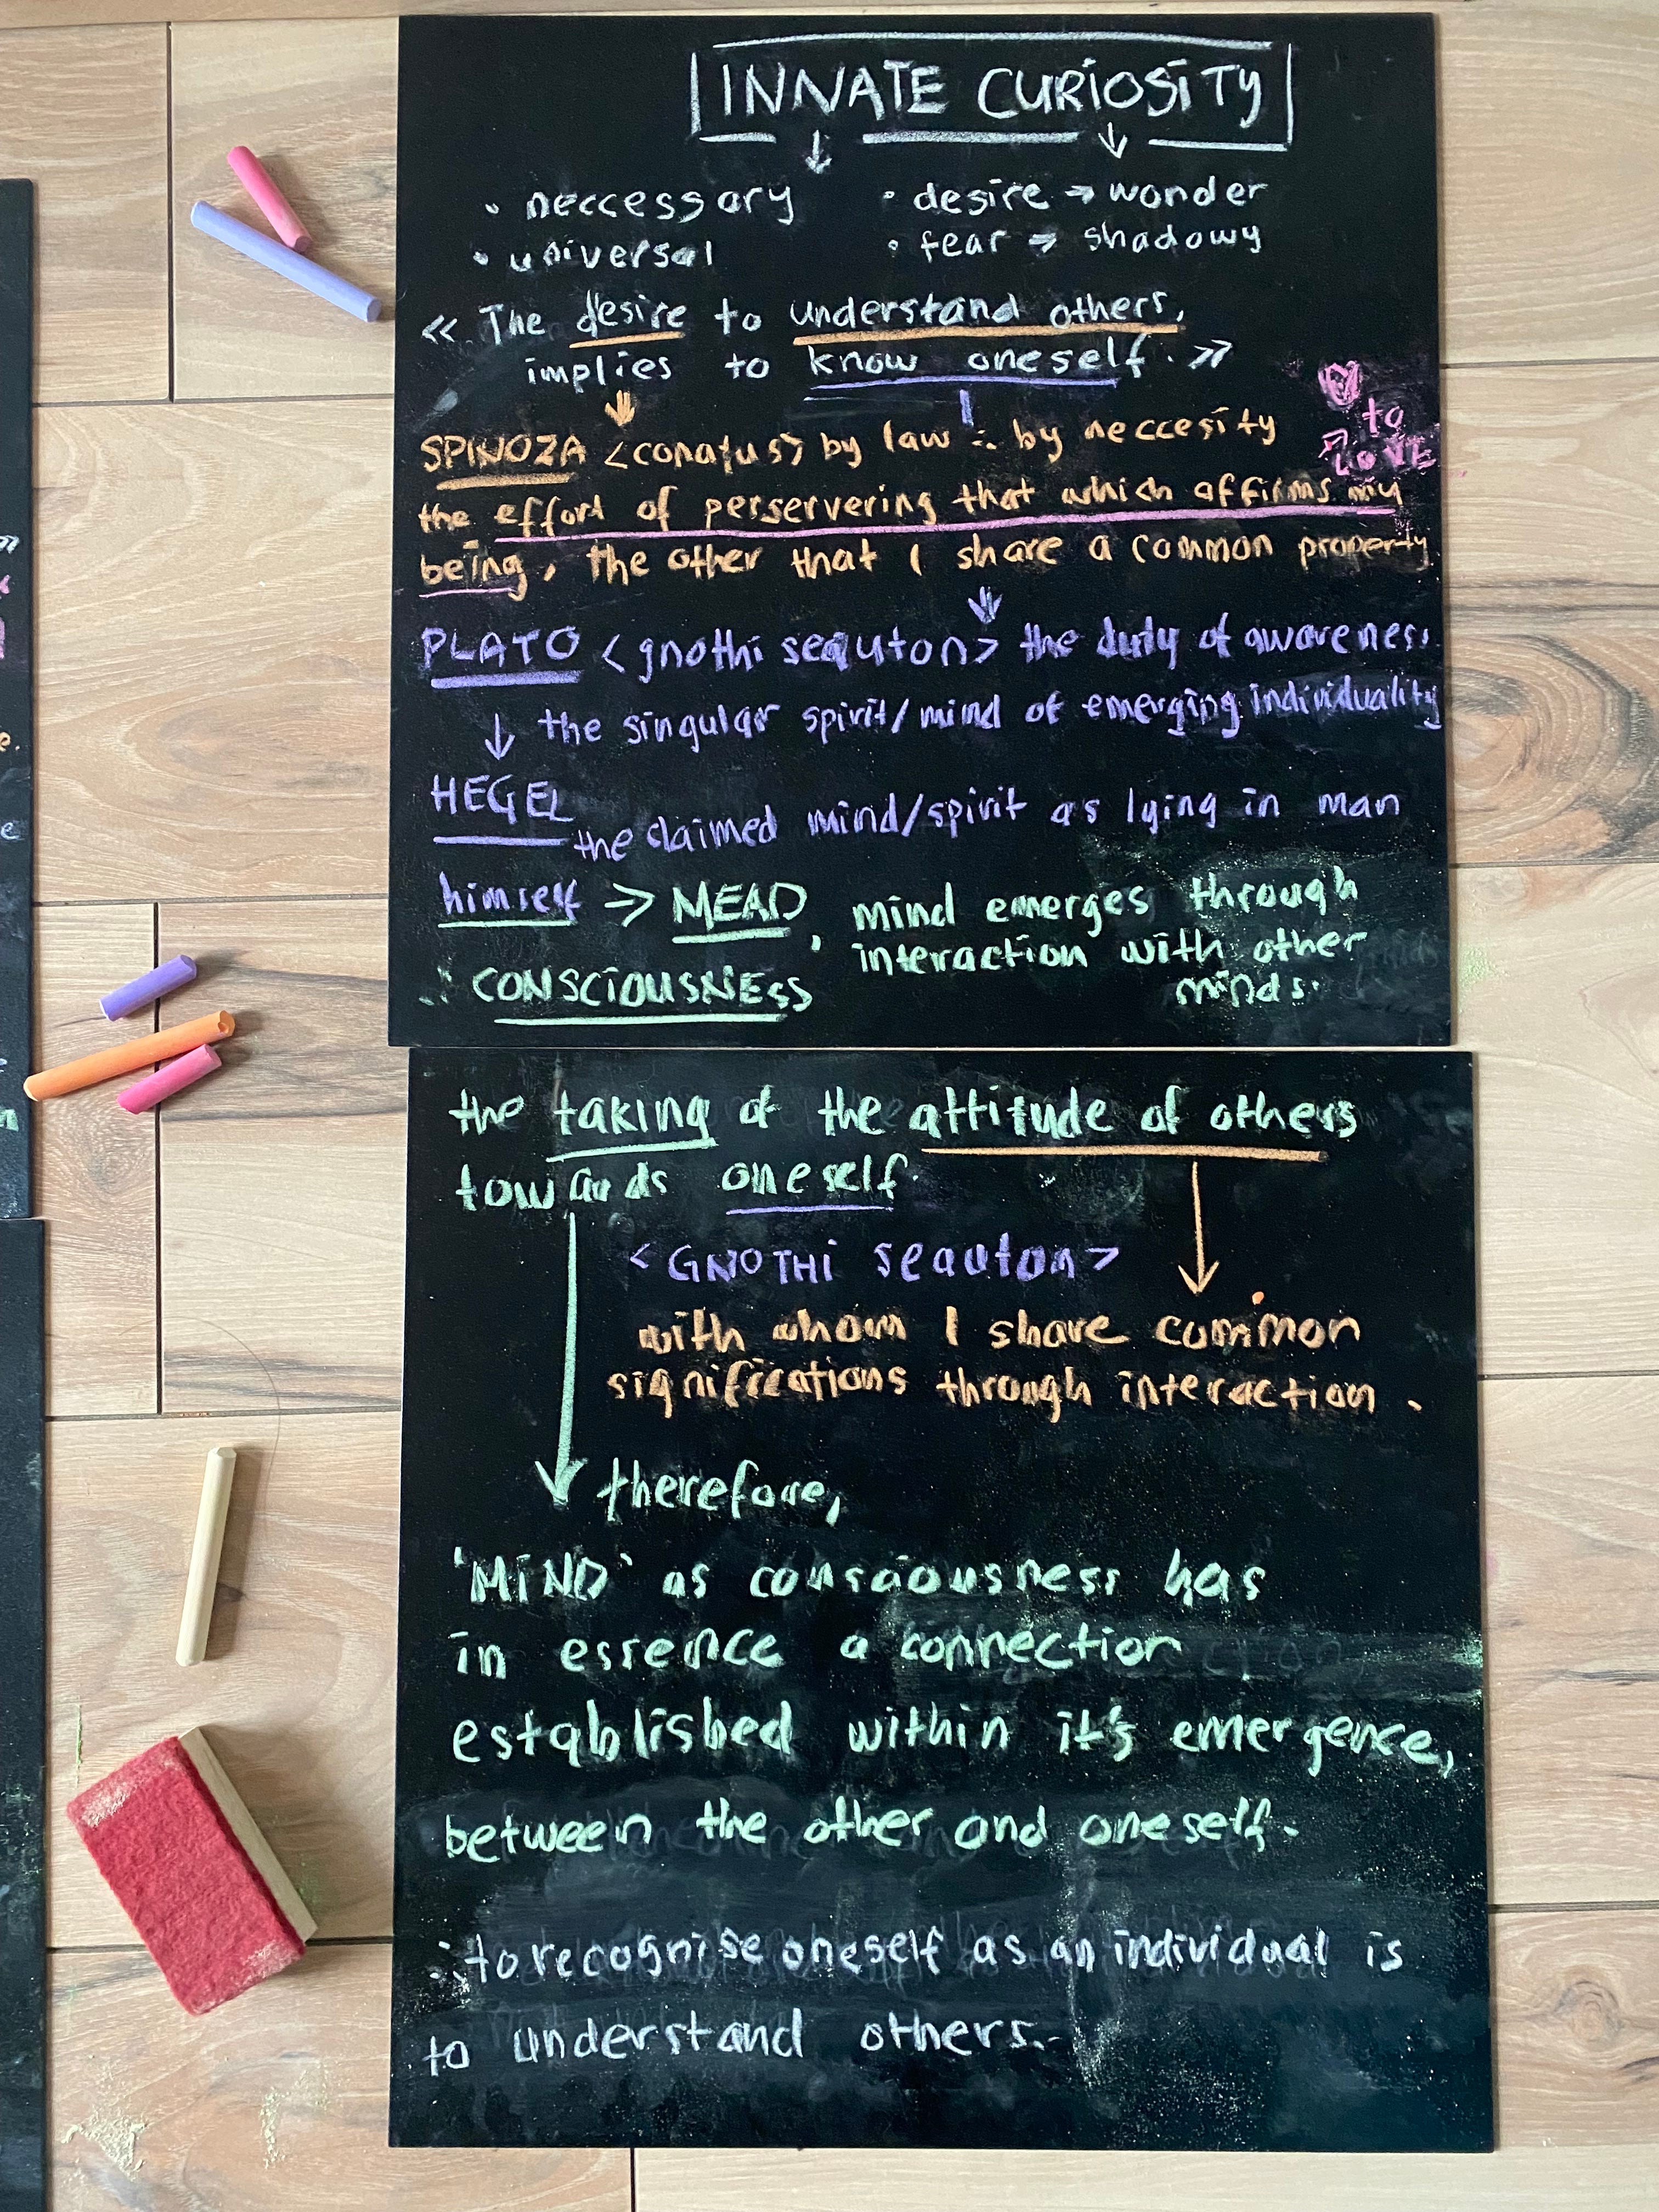 INNATE CURIOSITY
↓ ↓
• neccessary • desire → wonder
• universal • fear → shadowy
« The desire to understand others,
implies to know oneself. »
SPINOZA <conatus> by law ∴ by neccesity
to
LOVE
the effort of perservering that which affirms my
being, the other that I share a common property
PLATO <gnothi seauton> the duty of awareness.
↓ the singular spirit/mind of emerging individuality
HEGEL
the claimed mind/spirit as lying in man
himself → MEAD, mind emerges through
interaction with other
minds.
∴ CONSCIOUSNESS
the taking of the attitude of others
towards oneself.
<GNOTHI seauton>
with whom I share common
significations through interaction.
therefore,
'MIND' as consciousness has
in essence a connection
established within it's emergence,
between the other and oneself.
∴ to recognise oneself as an individual is
to understand others.